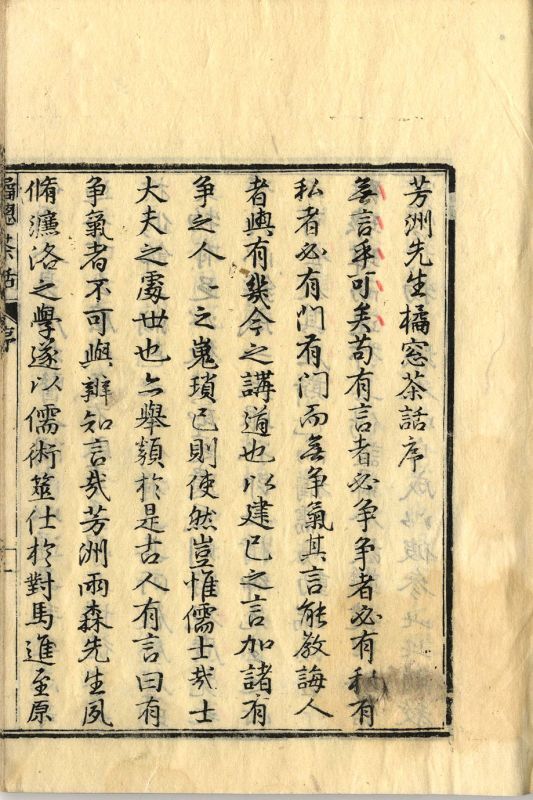 芳洲先生橘窓茶話序
無言乎可矣苟有言者必争争者必有私有
私者必有門有門而無争氣其言能教誨人
者與有幾今之講道也以建已之言加諸有
争之人人之嵬瑣已則使然豈惟儒士哉士
大夫之處世也亦舉類於是古人有言曰有
争氣者不可與辨知言哉芳洲雨森先生夙
脩濂洛之學遂以儒術筮仕於對馬進至原
橘窓茶話 序